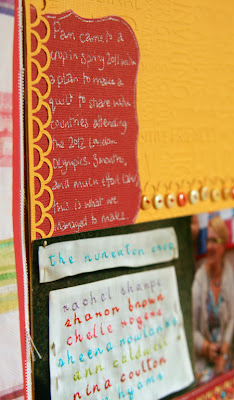 Pam came to a
crop in Spring 2011 with
a plan to make a
quilt to share with
countries attending
the 2012 London
Olympics. 3 months,
and much effort later,
this is what we
managed to make.
the nuneaton crew
rachel sharpe
sharon brown
chelle rogers
sheena rowlands
ann caldwell
nina coulton
hyams